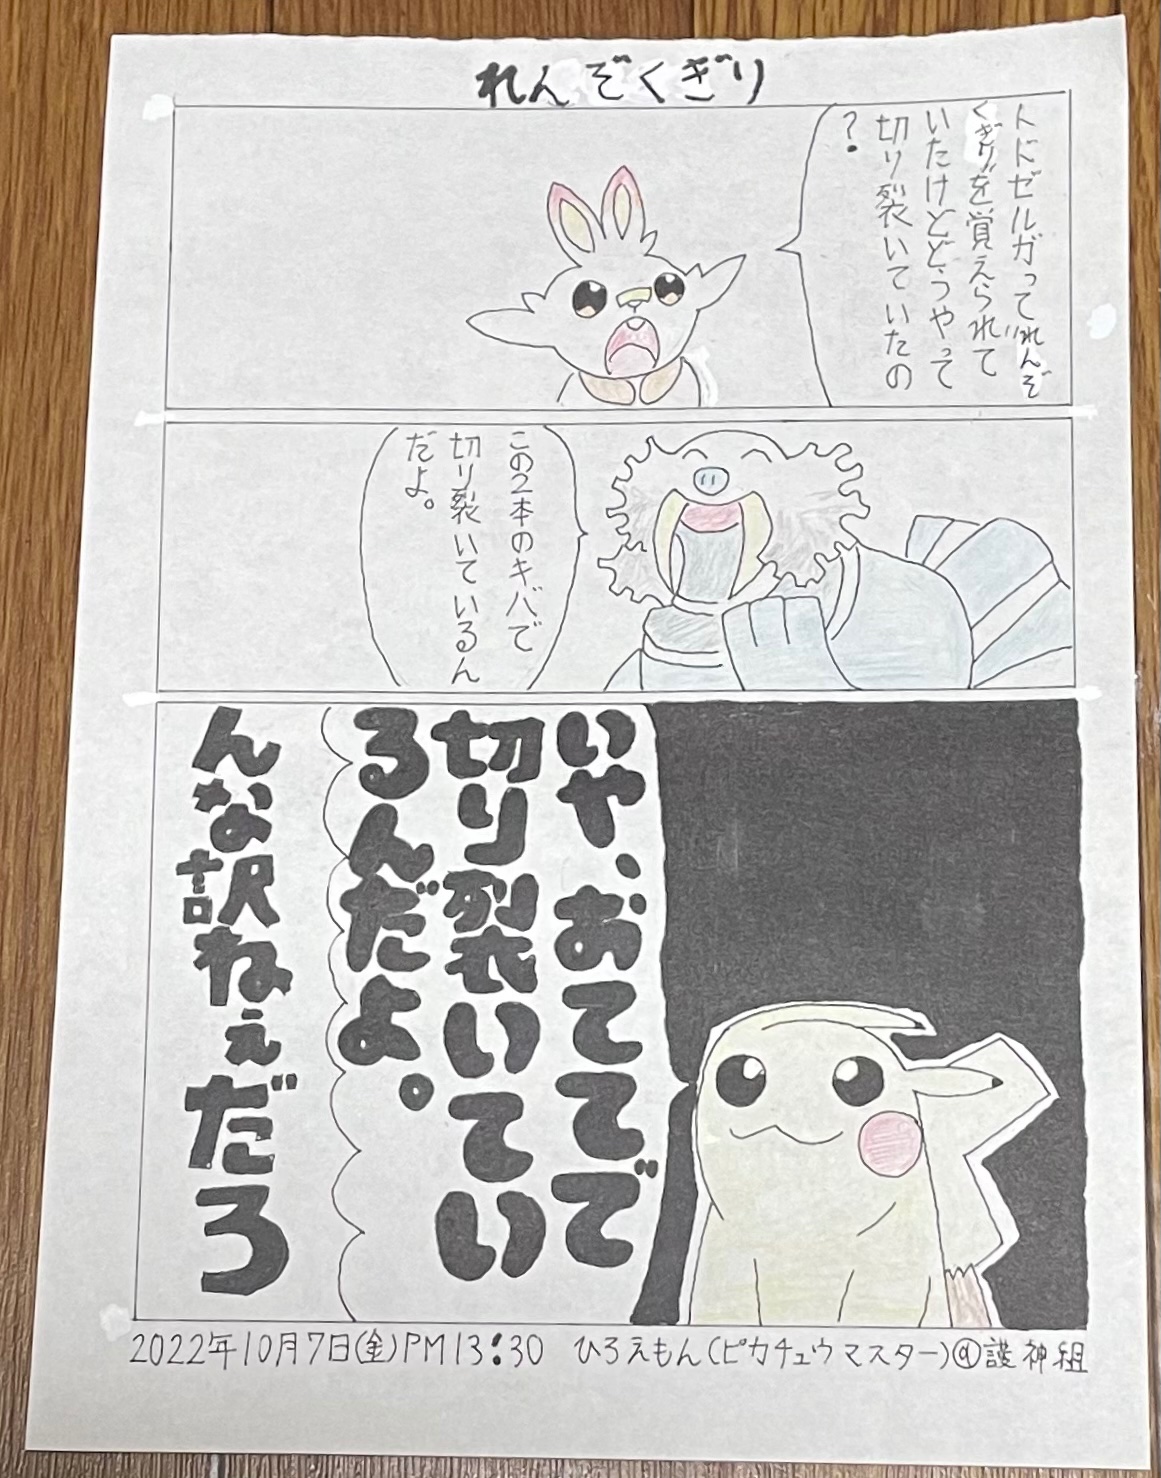 れんぞくぎり
トドゼルガって"れんぞ
くぎり"を覚えられて
いたけどどうやって
切り裂いていたの
？
この2本のキバで
切り裂いているん
だよ。
いや、おててで
切り裂いてい
るんだよ。
んな訳ねぇだろ
2022年10月7日(金)PM13:30 ひろえもん(ピカチュウマスター)@護神組